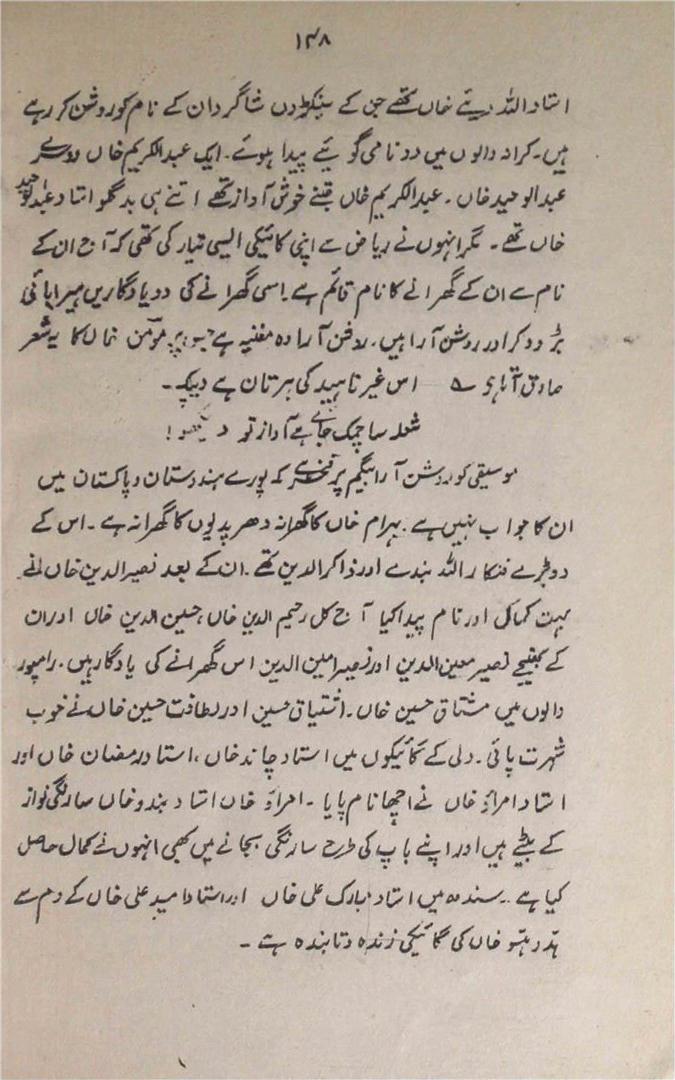 ۱۴۸
استاد اللہ دیئے خاں تھے جن کے سینکڑوں شاگرد ان کے نام کو روشن کر رہے
ہیں۔ کرانہ والوں میں دو نامی گویئے پیدا ہوئے۔ ایک عبدالکریم خاں دوسرے
عبدالوحید خاں۔ عبدالکریم خاں جتنے خوش آواز تھے اتنے ہی بدگلو استاد عبدالوحید
خاں تھے۔ مگر انہوں نے ریاض سے اپنی گائیکی ایسی تیار کی تھی کہ آج ان کے
نام سے ان کے گھرانے کا نام قائم ہے۔ اسی گھرانے کی دو یادگاریں ہیرا بائی
بڑودکر اور روشن آرا ہیں۔ روشن آرا وہ مغنیہ ہے جس پر مومن خاں کا یہ شعر
صادق آتا ہے ؎ اس غیر ناہید کی ہر تان ہے دیپک۔
شعلہ سا چمک جائے ہے آواز تو دیکھو!
موسیقی کو روشن آرا بیگم پر فخر ہے کہ پورے ہندوستان و پاکستان میں
ان کا جواب نہیں ہے۔ بہرام خاں کا گھرانہ دھرپدیوں کا گھرانہ ہے۔ اس کے
دو بڑے فنکار اللہ بندے اور ذاکرالدین تھے۔ ان کے بعد نصیرالدین خاں نے
بہت کمائی اور نام پیدا کیا آج کل رحیم الدین خاں، حسین الدین خاں اور ان
کے بھتیجے نصیر معین الدین اور نصیر امین الدین اس گھرانے کی یادگار ہیں۔ رامپور
والوں میں مشتاق حسین خاں۔ اشتیاق حسین اور لطافت حسین خاں نے خوب
شہرت پائی۔ دلی کے گائیکوں میں استاد چاند خاں، استاد رمضان خاں اور
استاد امراؤ خاں نے اچھا نام پایا۔ امراؤ خاں استاد بندو خاں سارنگی نواز
کے بیٹے ہیں اور اپنے باپ کی طرح سارنگی بجانے میں بھی انہوں نے کمال حاصل
کیا ہے۔ سندھ میں استاد مبارک علی خاں اور استاد امید علی خاں کے دم سے
ہدّو ہسّو خاں کی گائیکی زندہ و تابندہ ہے۔